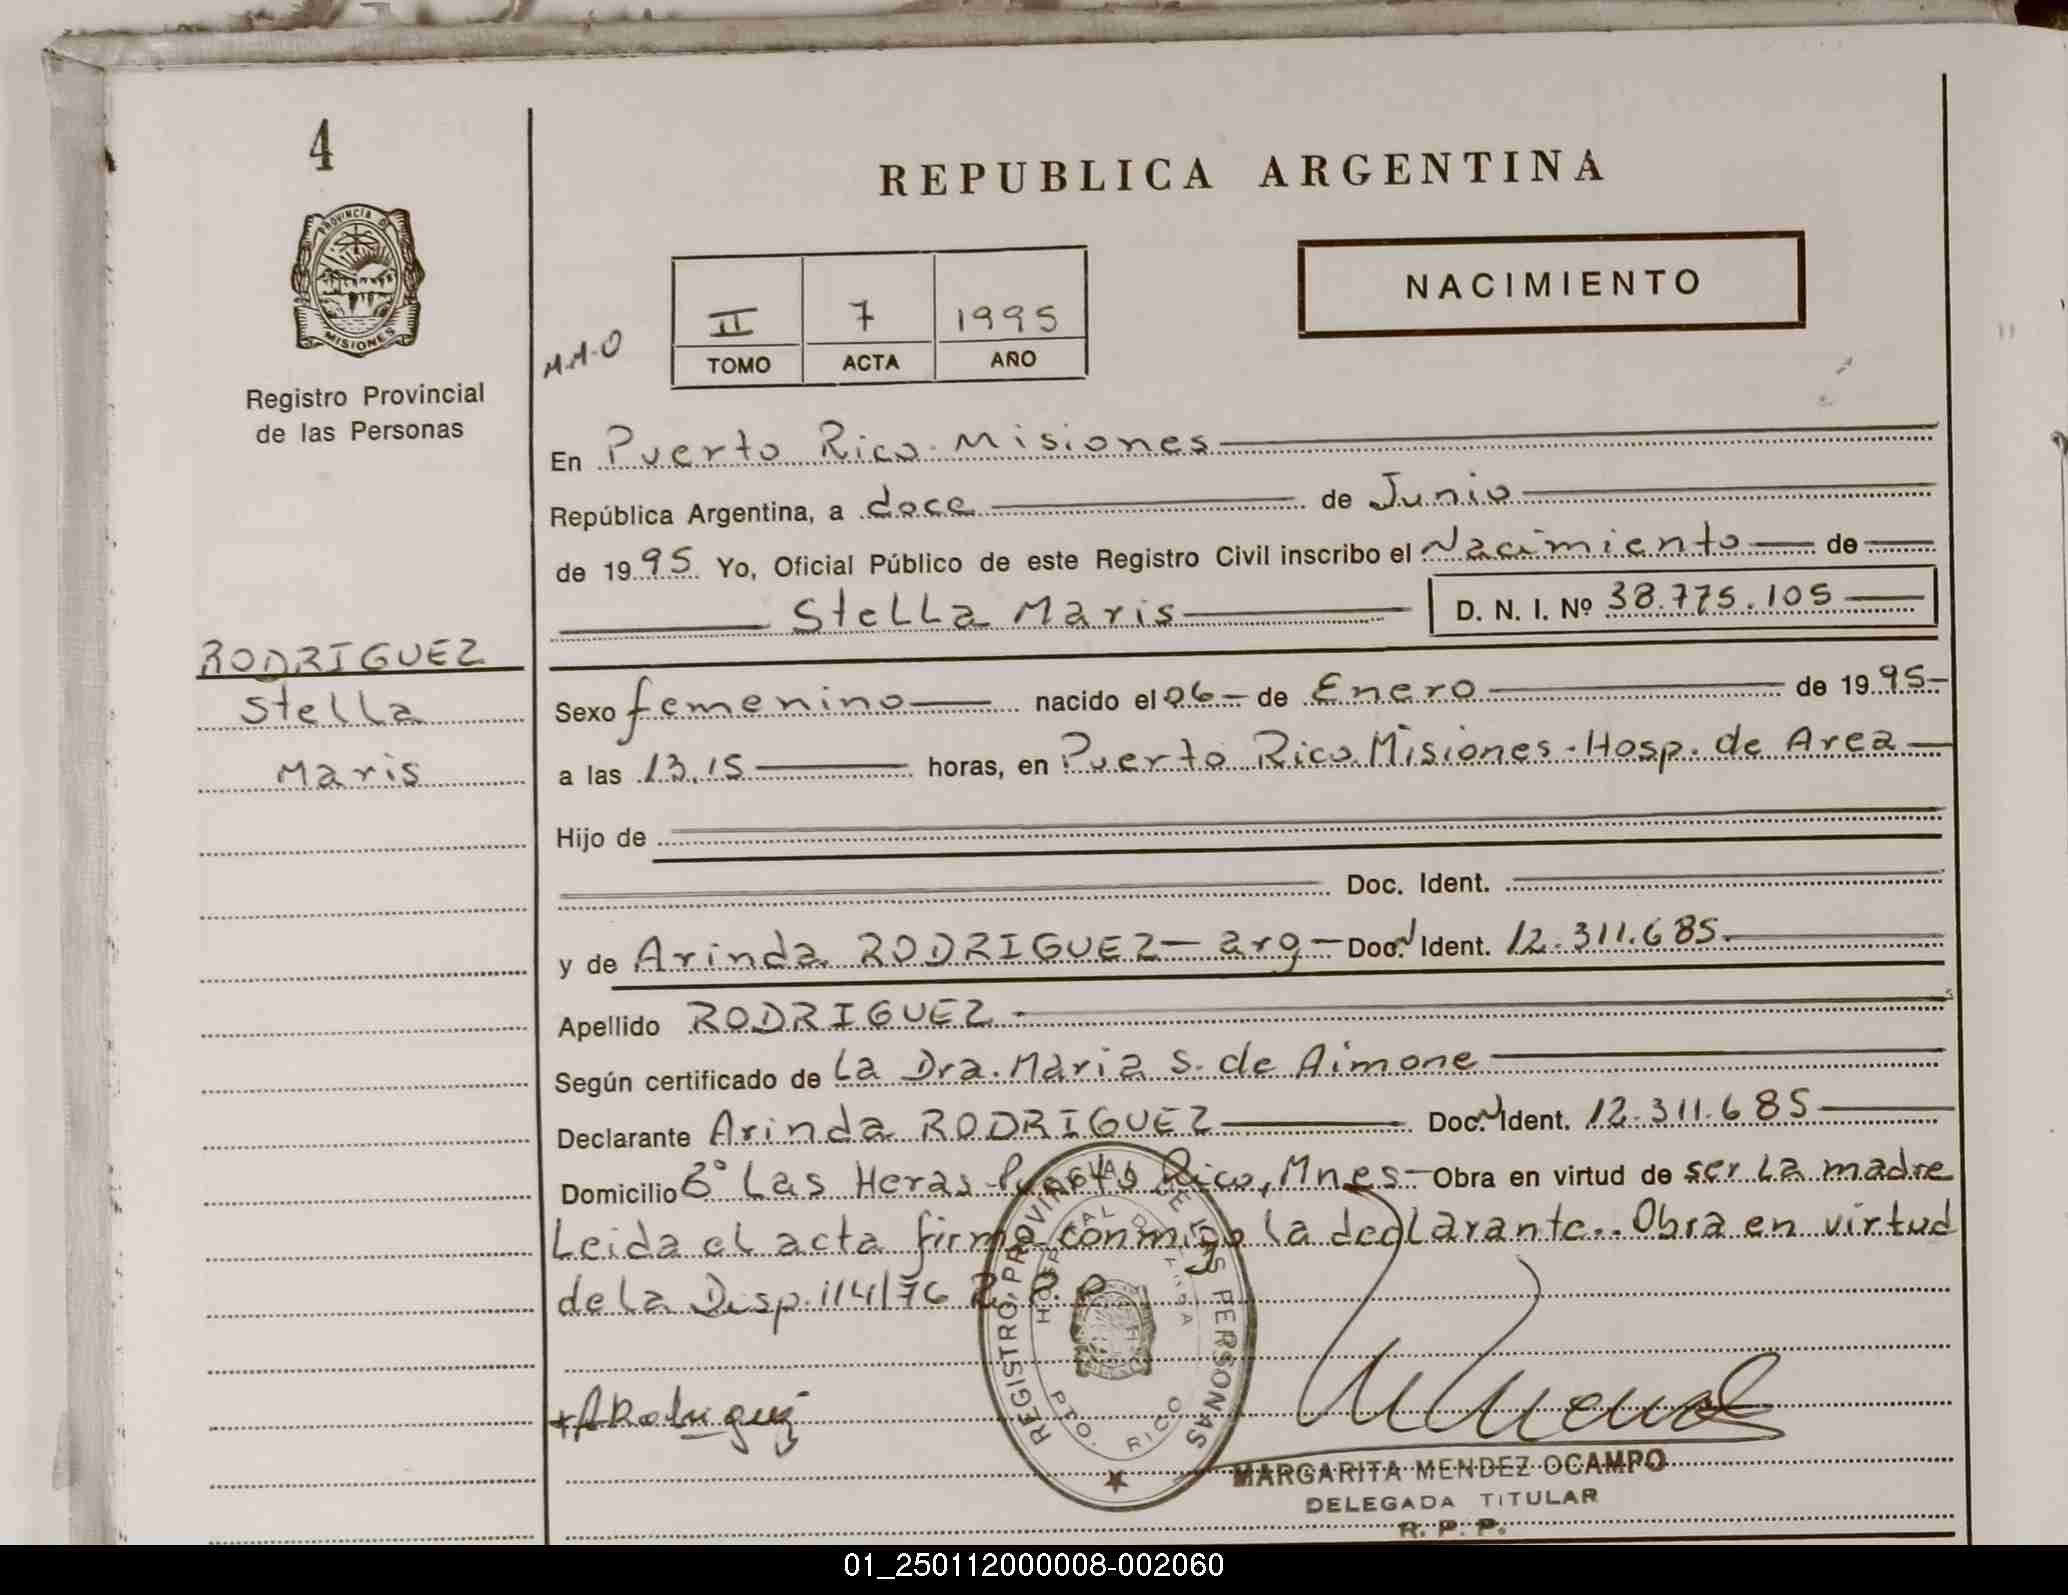 4
PROVINCIA DE
MISIONES
Registro Provincial
de las Personas
REPUBLICA ARGENTINA
NACIMIENTO
M.M.O
II 7 1995
TOMO ACTA AÑO
En Puerto Rico. Misiones
República Argentina, a doce de Junio
de 1995 Yo, Oficial Público de este Registro Civil inscribo el Nacimiento de
Stella Maris D. N. I. Nº 38.775.105
RODRIGUEZ
Stella
Maris
Sexo femenino nacido el 06 de Enero de 1995
a las 13,15 horas, en Puerto Rico. Misiones - Hosp. de Area
Hijo de
Doc. Ident.
y de Arinda RODRIGUEZ - arg - Doc. Ident. 12.311.685
Apellido RODRIGUEZ
Según certificado de La Dra. Maria S. de Aimone
Declarante Arinda RODRIGUEZ Doc. Ident. 12.311.685
Domicilio Bº Las Heras Puerto Rico, Mnes - Obra en virtud de ser La madre
Leida el acta firma conmigo la declarante.. Obra en virtud
de la Disp. 114/76 R.P.P
+ARodriguez
REGISTRO PROVINCIAL DE LAS PERSONAS
HOSPITAL DE AREA
PTO. RICO
MARGARITA MENDEZ OCAMPO
DELEGADA TITULAR
R. P. P.
01_250112000008-002060